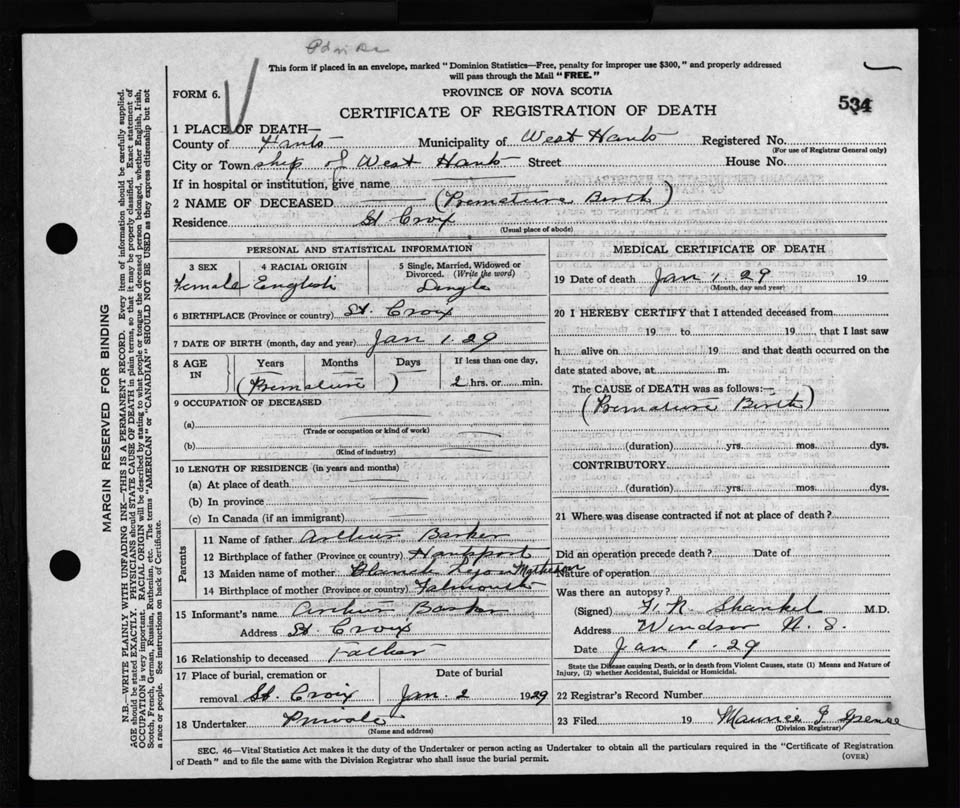 This form if placed in an envelope, marked "Dominion Statistics—Free, penalty for improper use $300," and properly addressed
will pass through the Mail "FREE."
FORM 6.
PROVINCE OF NOVA SCOTIA
534
CERTIFICATE OF REGISTRATION OF DEATH
1 PLACE OF DEATH—
County of Hants Municipality of West Hants Registered No.
(For use of Registrar General only)
City or Town ship of West Hants Street House No.
If in hospital or institution, give name
2 NAME OF DECEASED (Premature Birth)
Residence St. Croix
(Usual place of abode)
PERSONAL AND STATISTICAL INFORMATION
3 SEX 4 RACIAL ORIGIN 5 Single, Married, Widowed or
Divorced. (Write the word)
Female English Single
6 BIRTHPLACE (Province or country) St. Croix
7 DATE OF BIRTH (month, day and year) Jan 1. 29
8 AGE IN Years Months Days If less than one day,
(Premature) 2 hrs. or min.
9 OCCUPATION OF DECEASED
(a)
(Trade or occupation or kind of work)
(b)
(Kind of industry)
10 LENGTH OF RESIDENCE (in years and months)
(a) At place of death
(b) In province
(c) In Canada (if an immigrant)
Parents
11 Name of father Arthur Barker
12 Birthplace of father (Province or country) Hantsport
13 Maiden name of mother Blanch Matheson
14 Birthplace of mother (Province or country) Falmouth
15 Informant's name Arthur Barker
Address St. Croix
16 Relationship to deceased Father
17 Place of burial, cremation or Date of burial
removal St. Croix Jan. 2 1929
18 Undertaker Private
(Name and address)
MEDICAL CERTIFICATE OF DEATH
19 Date of death Jan 1. 29 19
(Month, day and year)
20 I HEREBY CERTIFY that I attended deceased from
19 to 19 , that I last saw
h alive on 19 and that death occurred on the
date stated above, at m.
The CAUSE of DEATH was as follows:—
(Premature Birth)
(duration) yrs. mos. dys.
CONTRIBUTORY
(duration) yrs. mos. dys.
21 Where was disease contracted if not at place of death?
Did an operation precede death? Date of
Nature of operation
Was there an autopsy?
(Signed) Shankel M.D.
Address Windsor N. S.
Date Jan 1. 29
State the Disease causing Death, or in death from Violent Causes, state (1) Means and Nature of
Injury, (2) whether Accidental, Suicidal or Homicidal.
22 Registrar's Record Number
23 Filed 19 Maurice J Spence
(Division Registrar)
SEC. 46—Vital Statistics Act makes it the duty of the Undertaker or person acting as Undertaker to obtain all the particulars required in the "Certificate of Registration
of Death" and to file the same with the Division Registrar who shall issue the burial permit.
(OVER)
MARGIN RESERVED FOR BINDING
N.B.—WRITE PLAINLY WITH UNFADING INK—THIS IS A PERMANENT RECORD. Every item of information should be carefully supplied.
AGE should be stated EXACTLY. PHYSICIANS should STATE CAUSE OF DEATH in plain terms, so that it may be properly classified. Exact statement of
OCCUPATION is very important. RACIAL ORIGIN will be described by stating to what people or tongue the deceased person belonged, whether English, Irish,
Scotch, French, German, Russian, Ruthenian, etc. The terms "AMERICAN" or "CANADIAN" SHOULD NOT BE USED as they express citizenship but not
a race or people. See instructions on back of Certificate.